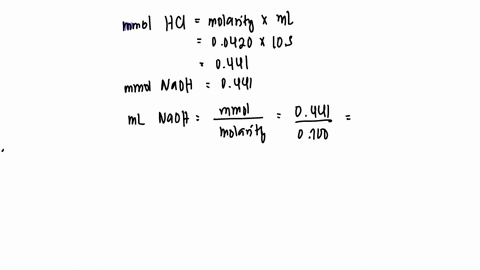 mmol HCl = molarity × mL
= 0.0420 × 10.5
= 0.441
mmol NaOH = 0.441
mL NaOH = mmol / molarity = 0.441 / 0.100 =